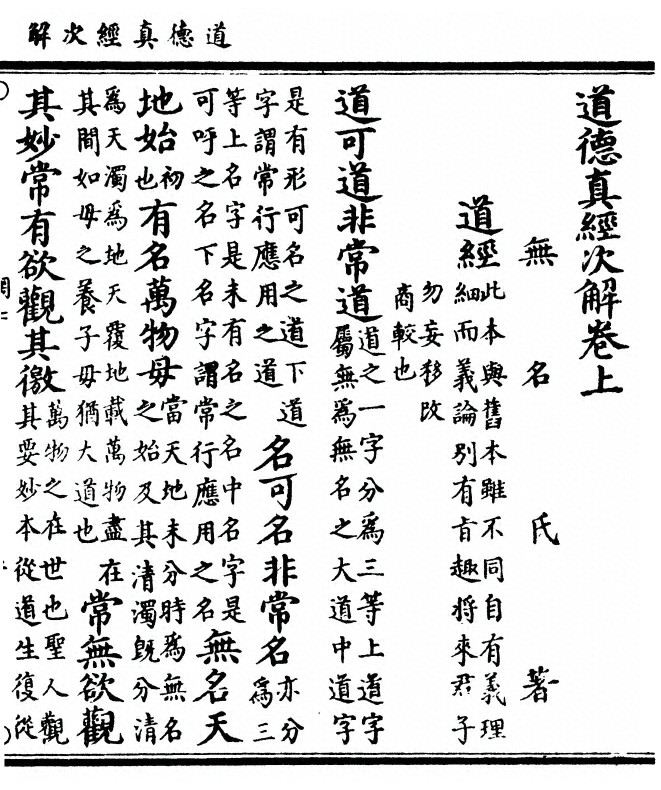 道德真經次解
道德真經次解卷上
無名氏著
道經
此本與舊本雖不同自有義理
細而義論別有旨趣將來君子
勿妄移改
商較也
道可道非常道
道之一字分爲三等上道字
屬無爲無名之大道中道字
是有形可名之道下道
字謂常行應用之道
名可名非常名
亦分
爲三
等上名字是未有名之名中名字是
可呼之名下名字謂常行應用之名
無名天
地始
初
也
有名萬物母
當天地未分時爲無名
之始及其清濁既分清
爲天濁爲地天覆地載萬物盡在
其間如母之養子母猶大道也
常無欲觀
其妙常有欲觀其徼
萬物之在世也聖人觀
其要妙本從道生復從